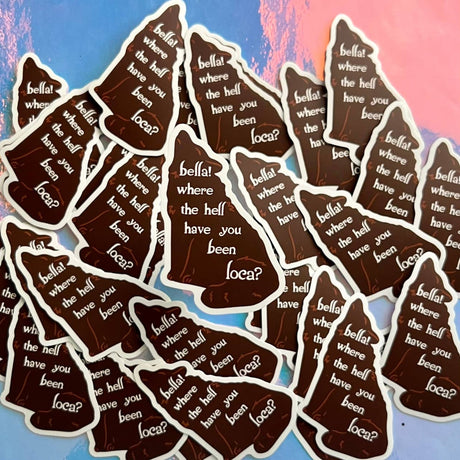 bella!
where
the hell
have you
been
loca?